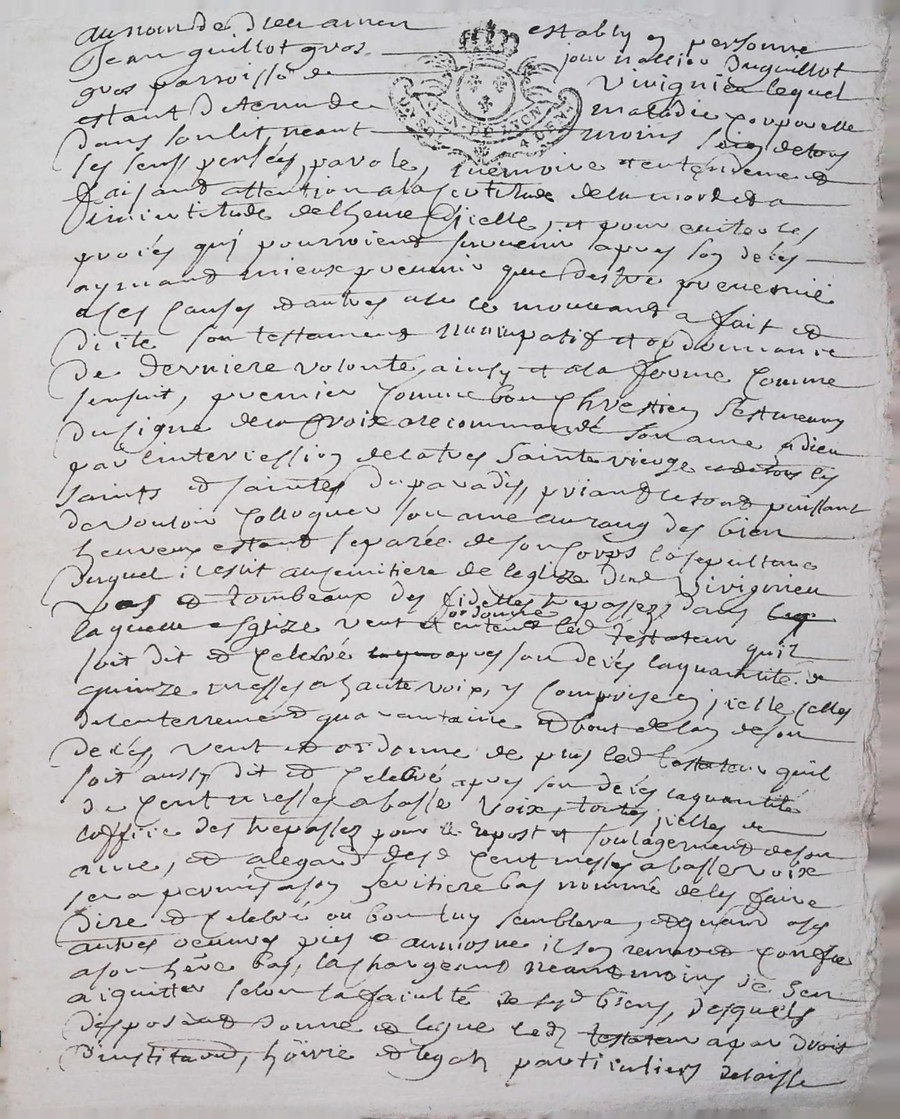 au nom de dieu amen establÿ en personne
Jean guillot gros journallier du guillot
gros parroisse de Virignieu lequel
estant detenu de maladie corporelle
GEN. DE LYON
4 DENS
dans son lit neant moins bien de tous
ses sens pensées, parole, memoire et entendement
faisant attention a la certitude de la mort et a
l'incertitude de l'heure d'icelle, et pour eviter les
procés qui pourroient survenir apres son decés
aymant mieux prevenir que destre prevenu
a ces causes et autres a ce mouvant a fait et
dicte son testament nuncupatif et ordonnance
de derniere volonté, ainsy et a la forme comme
sensuit, premier comme bon Chrestien sest muny
du signe de la Croix a recommandé son ame a dieu
par l'intercession de la tres sainte vierge et de tous les
saints et saintes du paradis, priant le tout puissant
de vouloir colloquer son ame au rang des bien
heureux estant separée de son corps la sepulture
duquel il eslit au cemitiere de leglize dud Virignieu
et tombeaux des fidelles trepassez dans
laquelle esglize veut et entend ordonne led testateur quil
soit dit et celebré apres son decés la quantité de
quinze messes a haute voix, y comprise en icelle celles
de lenterrement quarantaine et bout de lan de son
decés, veut et ordonne de plus led testateur quil
soit aussy dit et celebré apres son decés la quantité
de cent messes a basse voix, toutes icelles de
l'office des trepassez pour le repost et soulagement de son
ame, et a legard desd cent messes a basse voix
sera permis a son heritiere bas nommé de les faire
dire et celebré ou bon luy semblera, et quand a ses
autres oeuvres pies et aumosne il sen remet
a son here bas, la chargeant neantmoins de sen
aiquitter selon la faculté de sesd biens, desquels
disposant donne et legue led testateur a par droit
d'institution, hoirie et legat particuliers delaisse